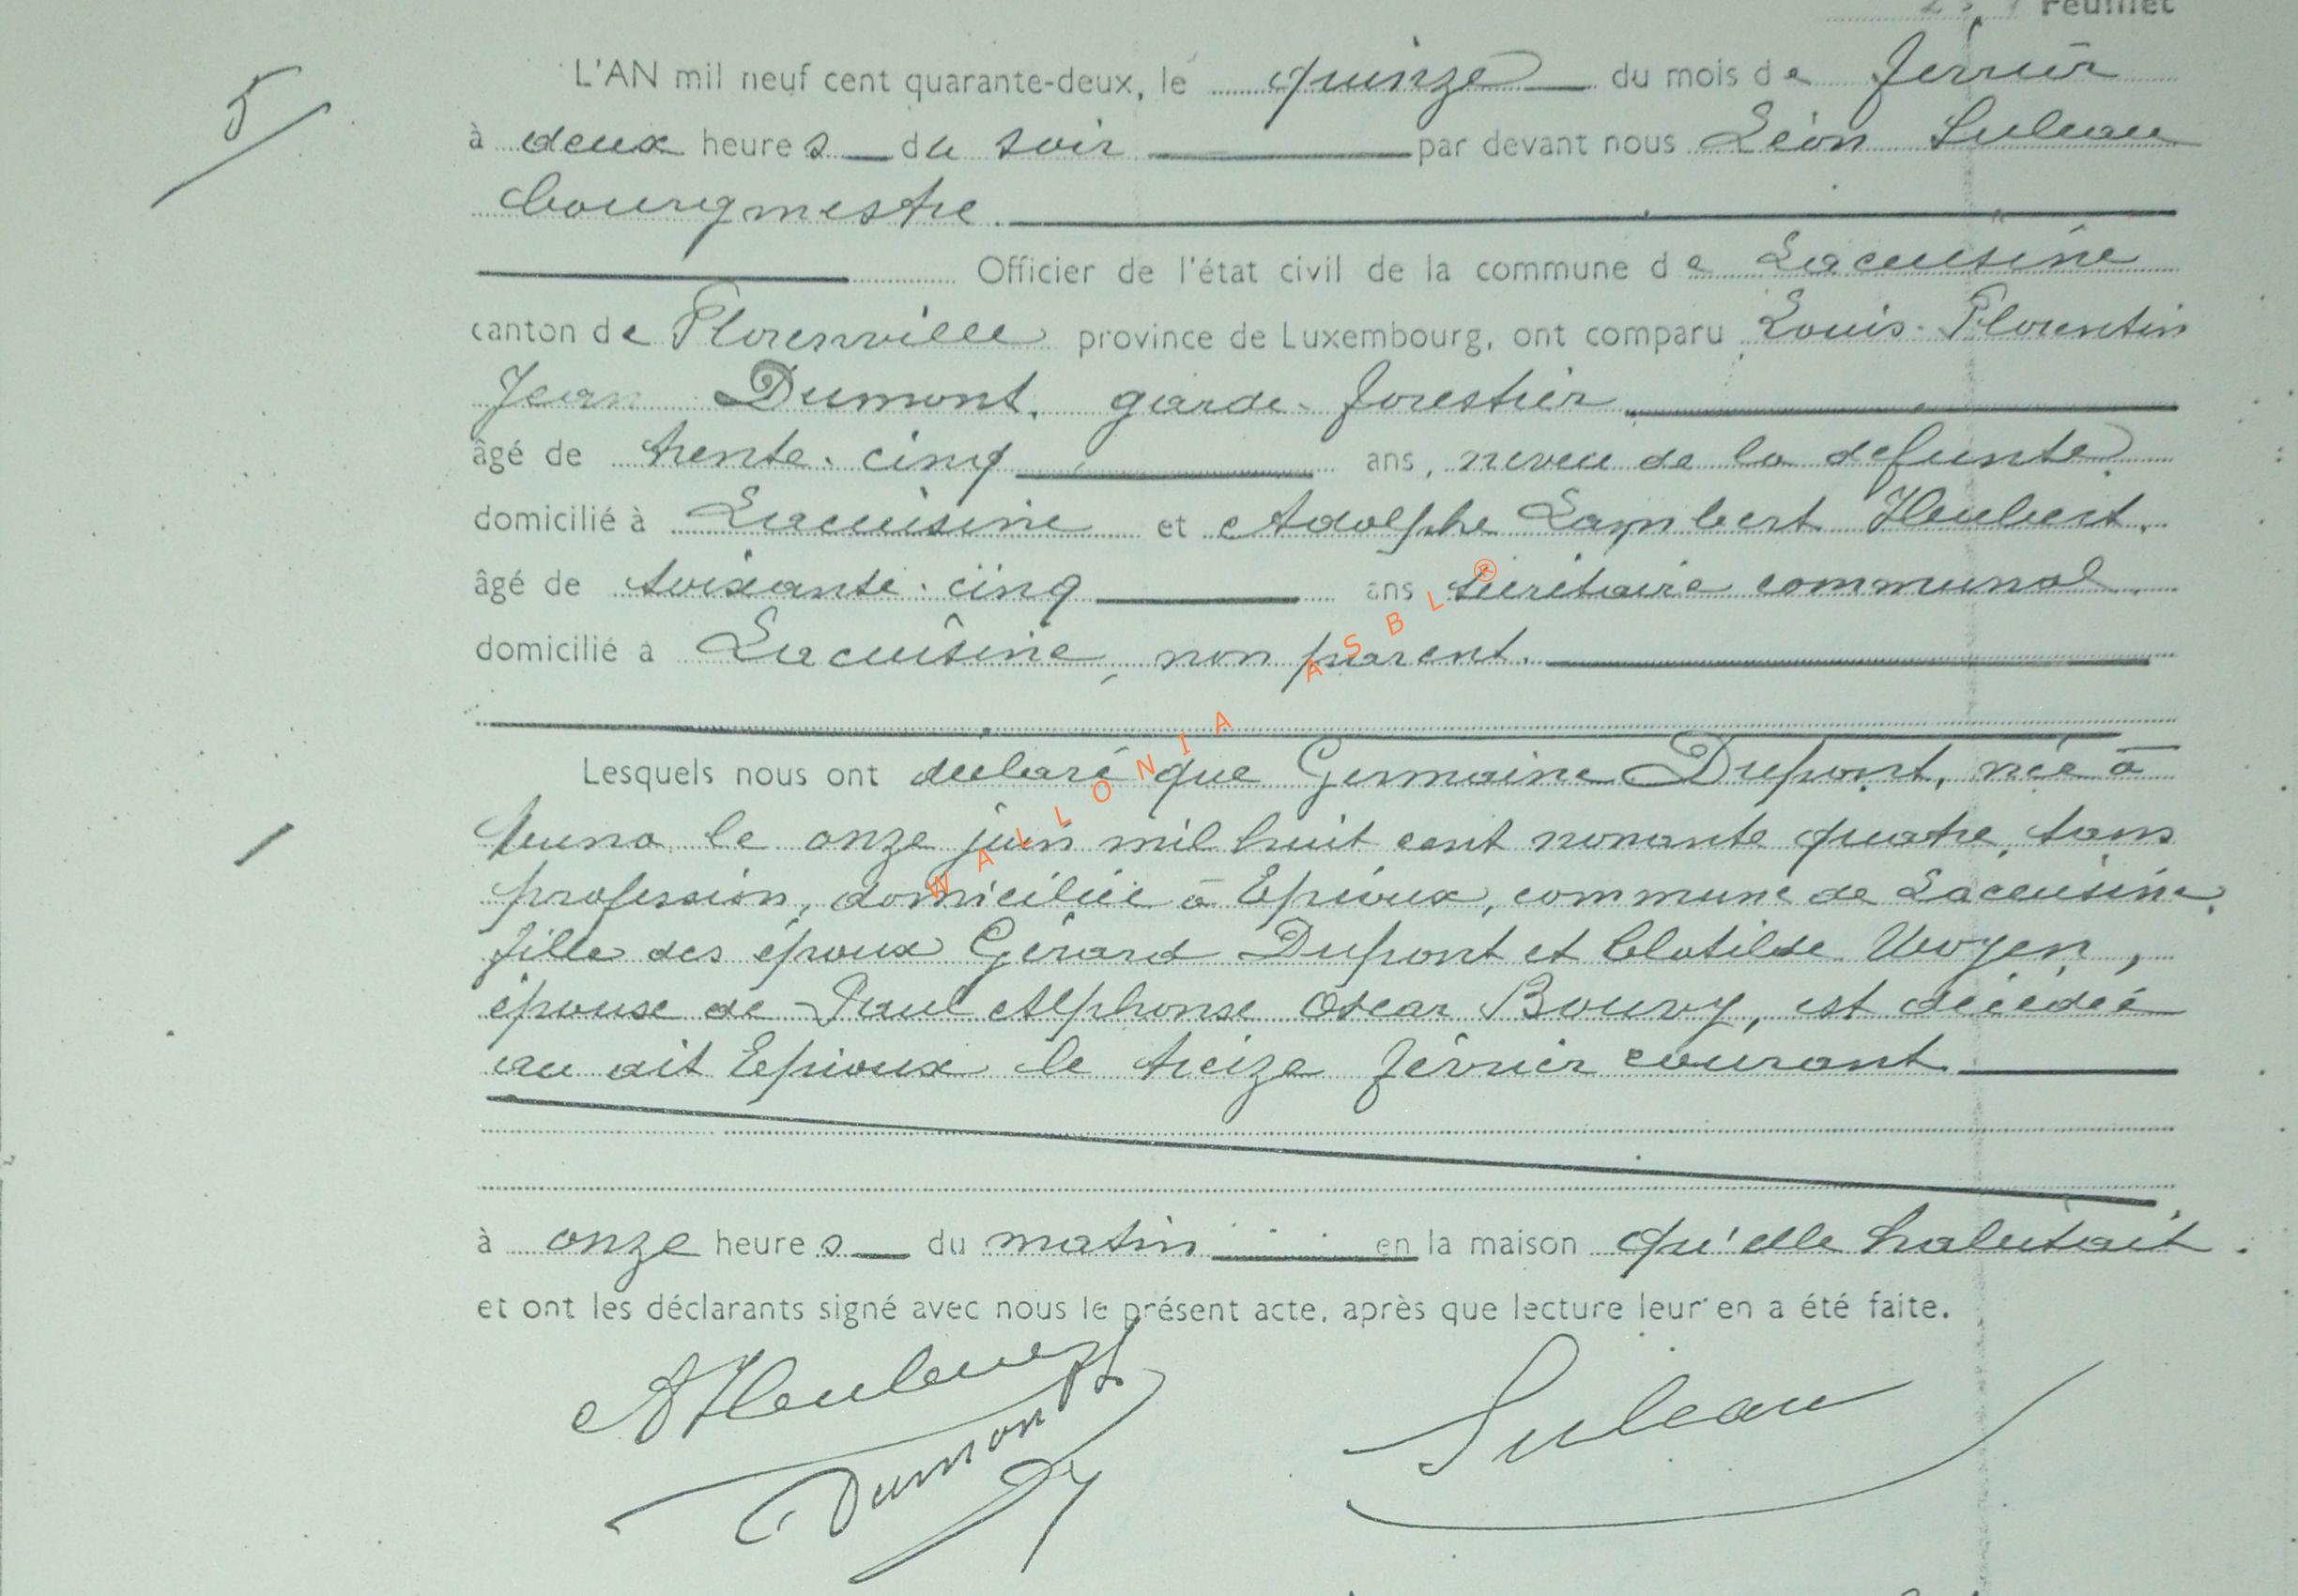 Feuillet
5
L'AN mil neuf cent quarante-deux, le quinze du mois de février
à deux heures du soir par devant nous Léon Suleau
bourgmestre.
Officier de l'état civil de la commune de Lacuisine
canton de Florenville province de Luxembourg, ont comparu Louis-Florentin
Jean Dumont, garde-forestier
âgé de trente-cinq ans, neveu de la défunte,
domicilié à Lacuisine et Adolphe Lambert Heubert,
âgé de soixante-cinq ans secrétaire communal
domicilié à Lacuisine, non parent.
Lesquels nous ont déclaré que Germaine Dupont, née à
Muno le onze juin mil huit cent nonante quatre, sans
profession, domiciliée à Epioux, commune de Lacuisine,
fille des époux Gérard Dupont et Clotilde,
épouse de Paul Alphonse Oscar Bouvy, est décédée
au dit Epioux le treize février courant.
à onze heures du matin en la maison qu'elle habitait.
et ont les déclarants signé avec nous le présent acte, après que lecture leur en a été faite.
Suleau
Dumont
WALLONIA ASBL®